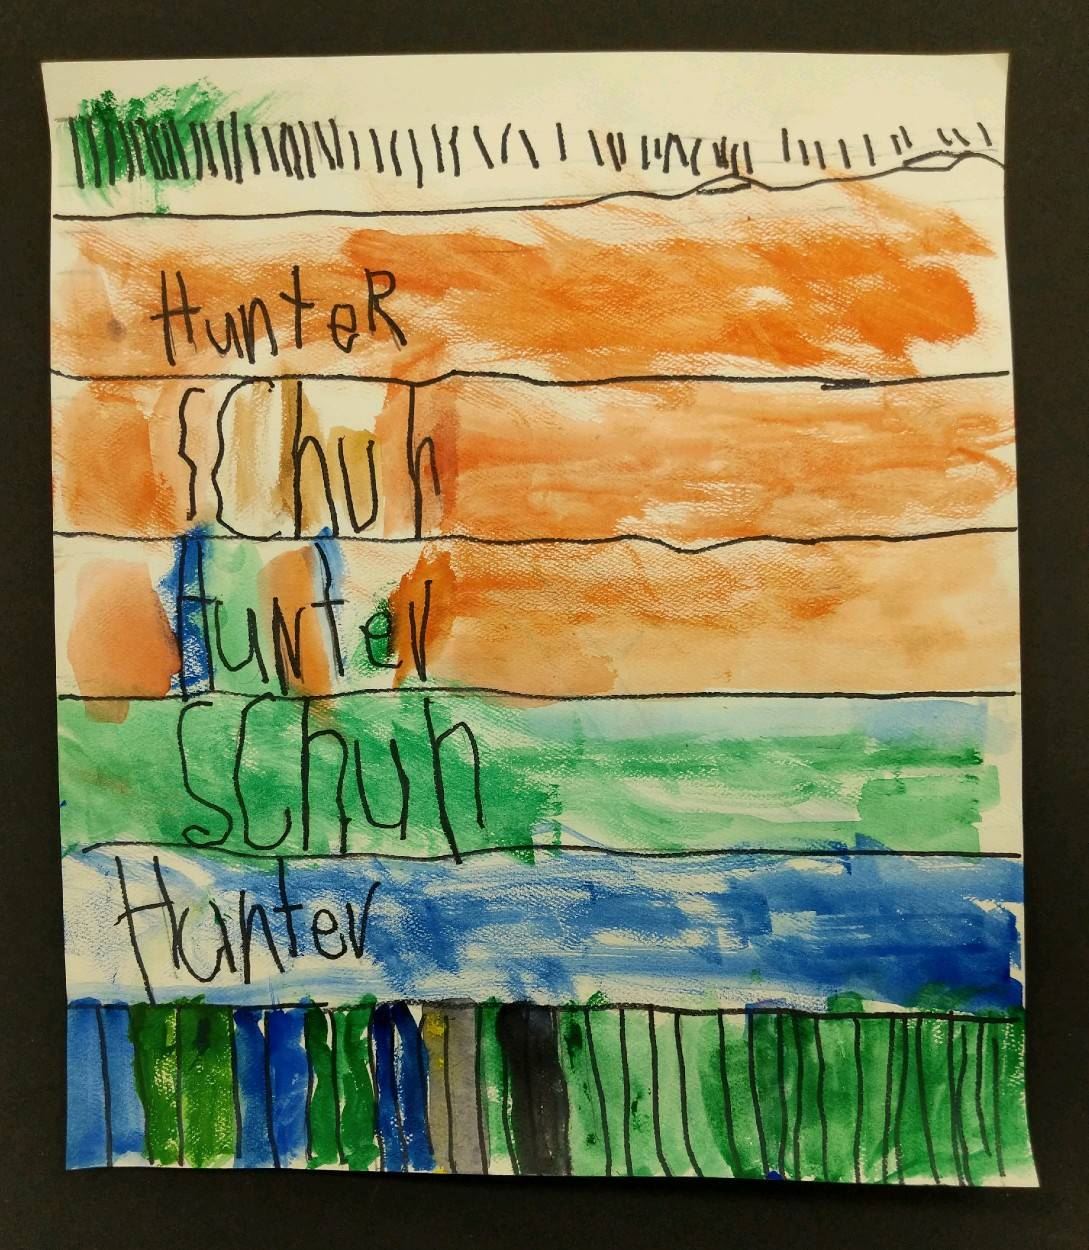 HunteR
SChuh
Hunter
SChuh
Hunter